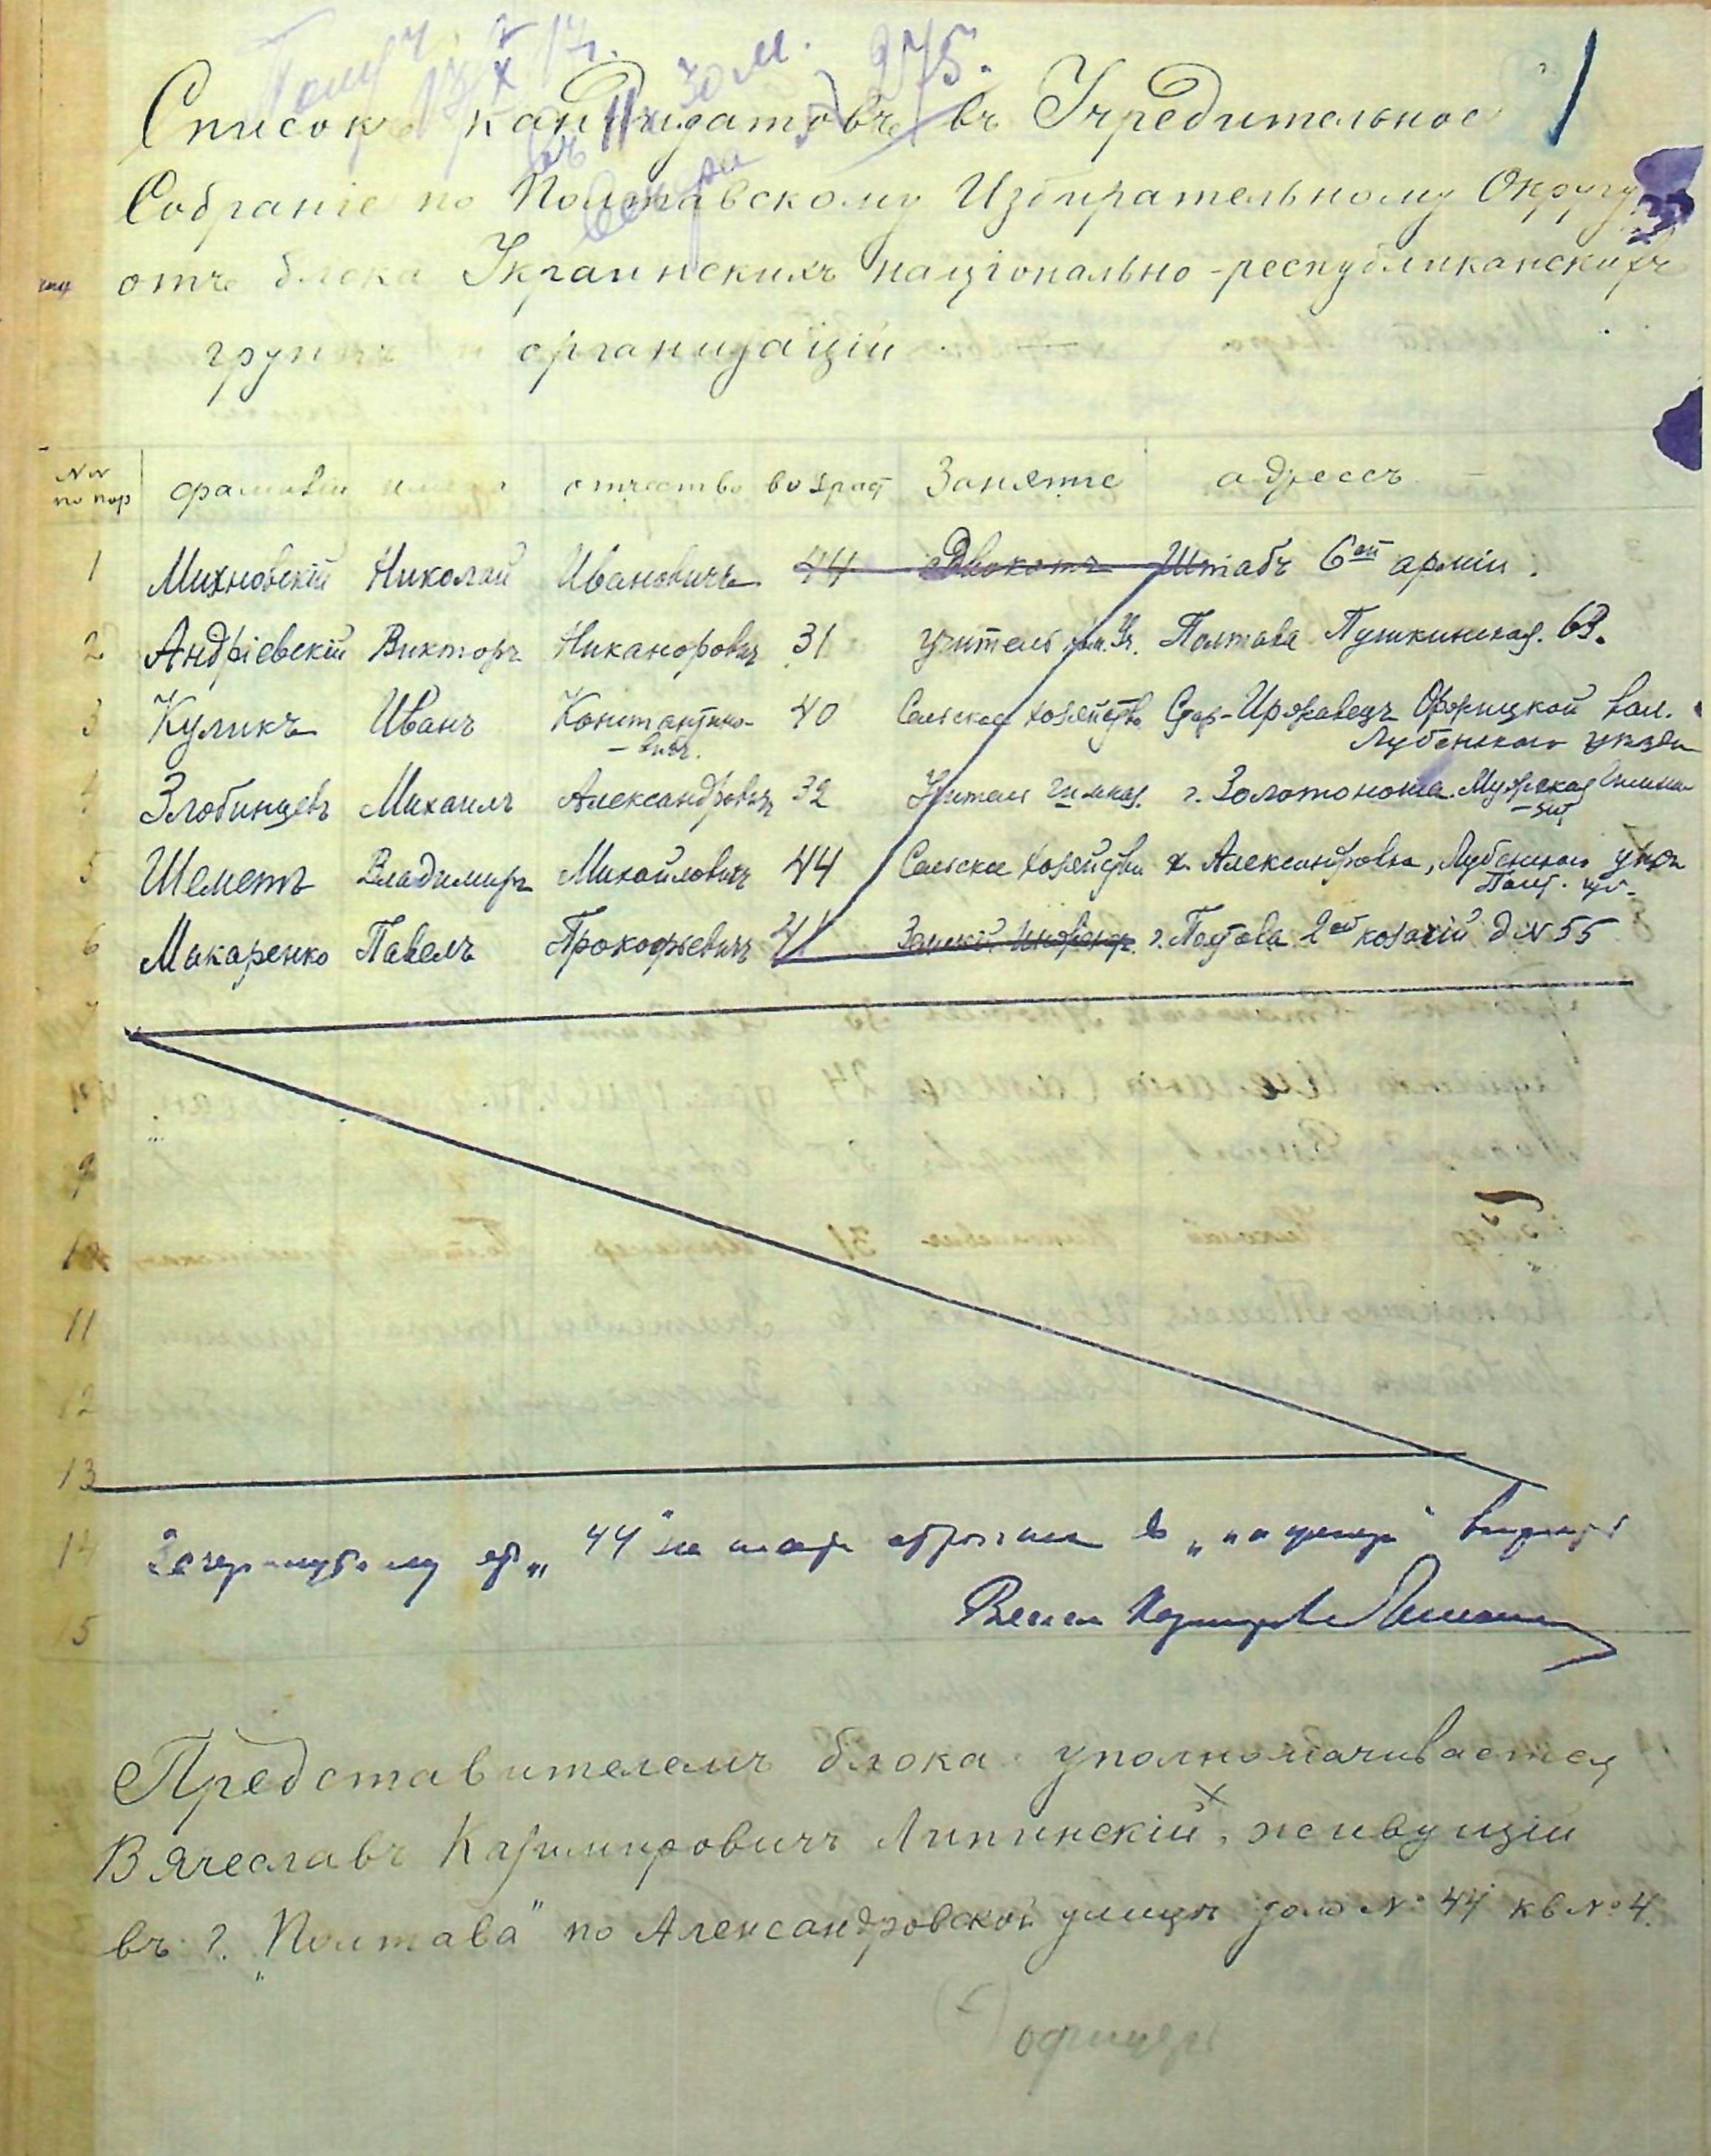 Получ. 13/X 17 г.
въ 11 ч. 30 м.
вечера
275.
1
Списокъ кандидатовъ въ Учредительное
Собраніе по Полтавскому Избирательному Округу
отъ блока Украинскихъ національно-республиканскихъ
группъ и организацій.
№№ по пор фамилія имя отчество возраст Занятіе адрессъ
1 Михновскій Николай Ивановичъ 44 Адвокатъ Штабъ 6ой арміи.
2 Андріевскій Викторъ Никаноровичъ 31 учитель Полтава Пушкинская. 63.
3 Куликъ Иванъ Константино-вичъ. 40 Сельское хозяйство Иржавецъ вол. Лубенскаго уѣзда
4 Злобинцевъ Михаилъ Александровичъ 32 Учитель гимназ. г. Золотоноша. Мужская Гимна-зія
5 Шеметъ Владимиръ Михайловичъ 44 Сельское хозяйство х. Александровка, Лубенскаго уѣзда Полт. губ.
6 Макаренко Павелъ Прокофьевичъ 41 г. Полтава 2ой козачій д № 55
7
9
10
11
12
13
14 Зачеркнутому „44“ не
15
Представителемъ блока уполномачивается
Вячеславъ Казимировичъ Липинскій, живущій
въ г. „Полтава“ по Александровской улицѣ домъ № 44 кв № 4.
офицеръ